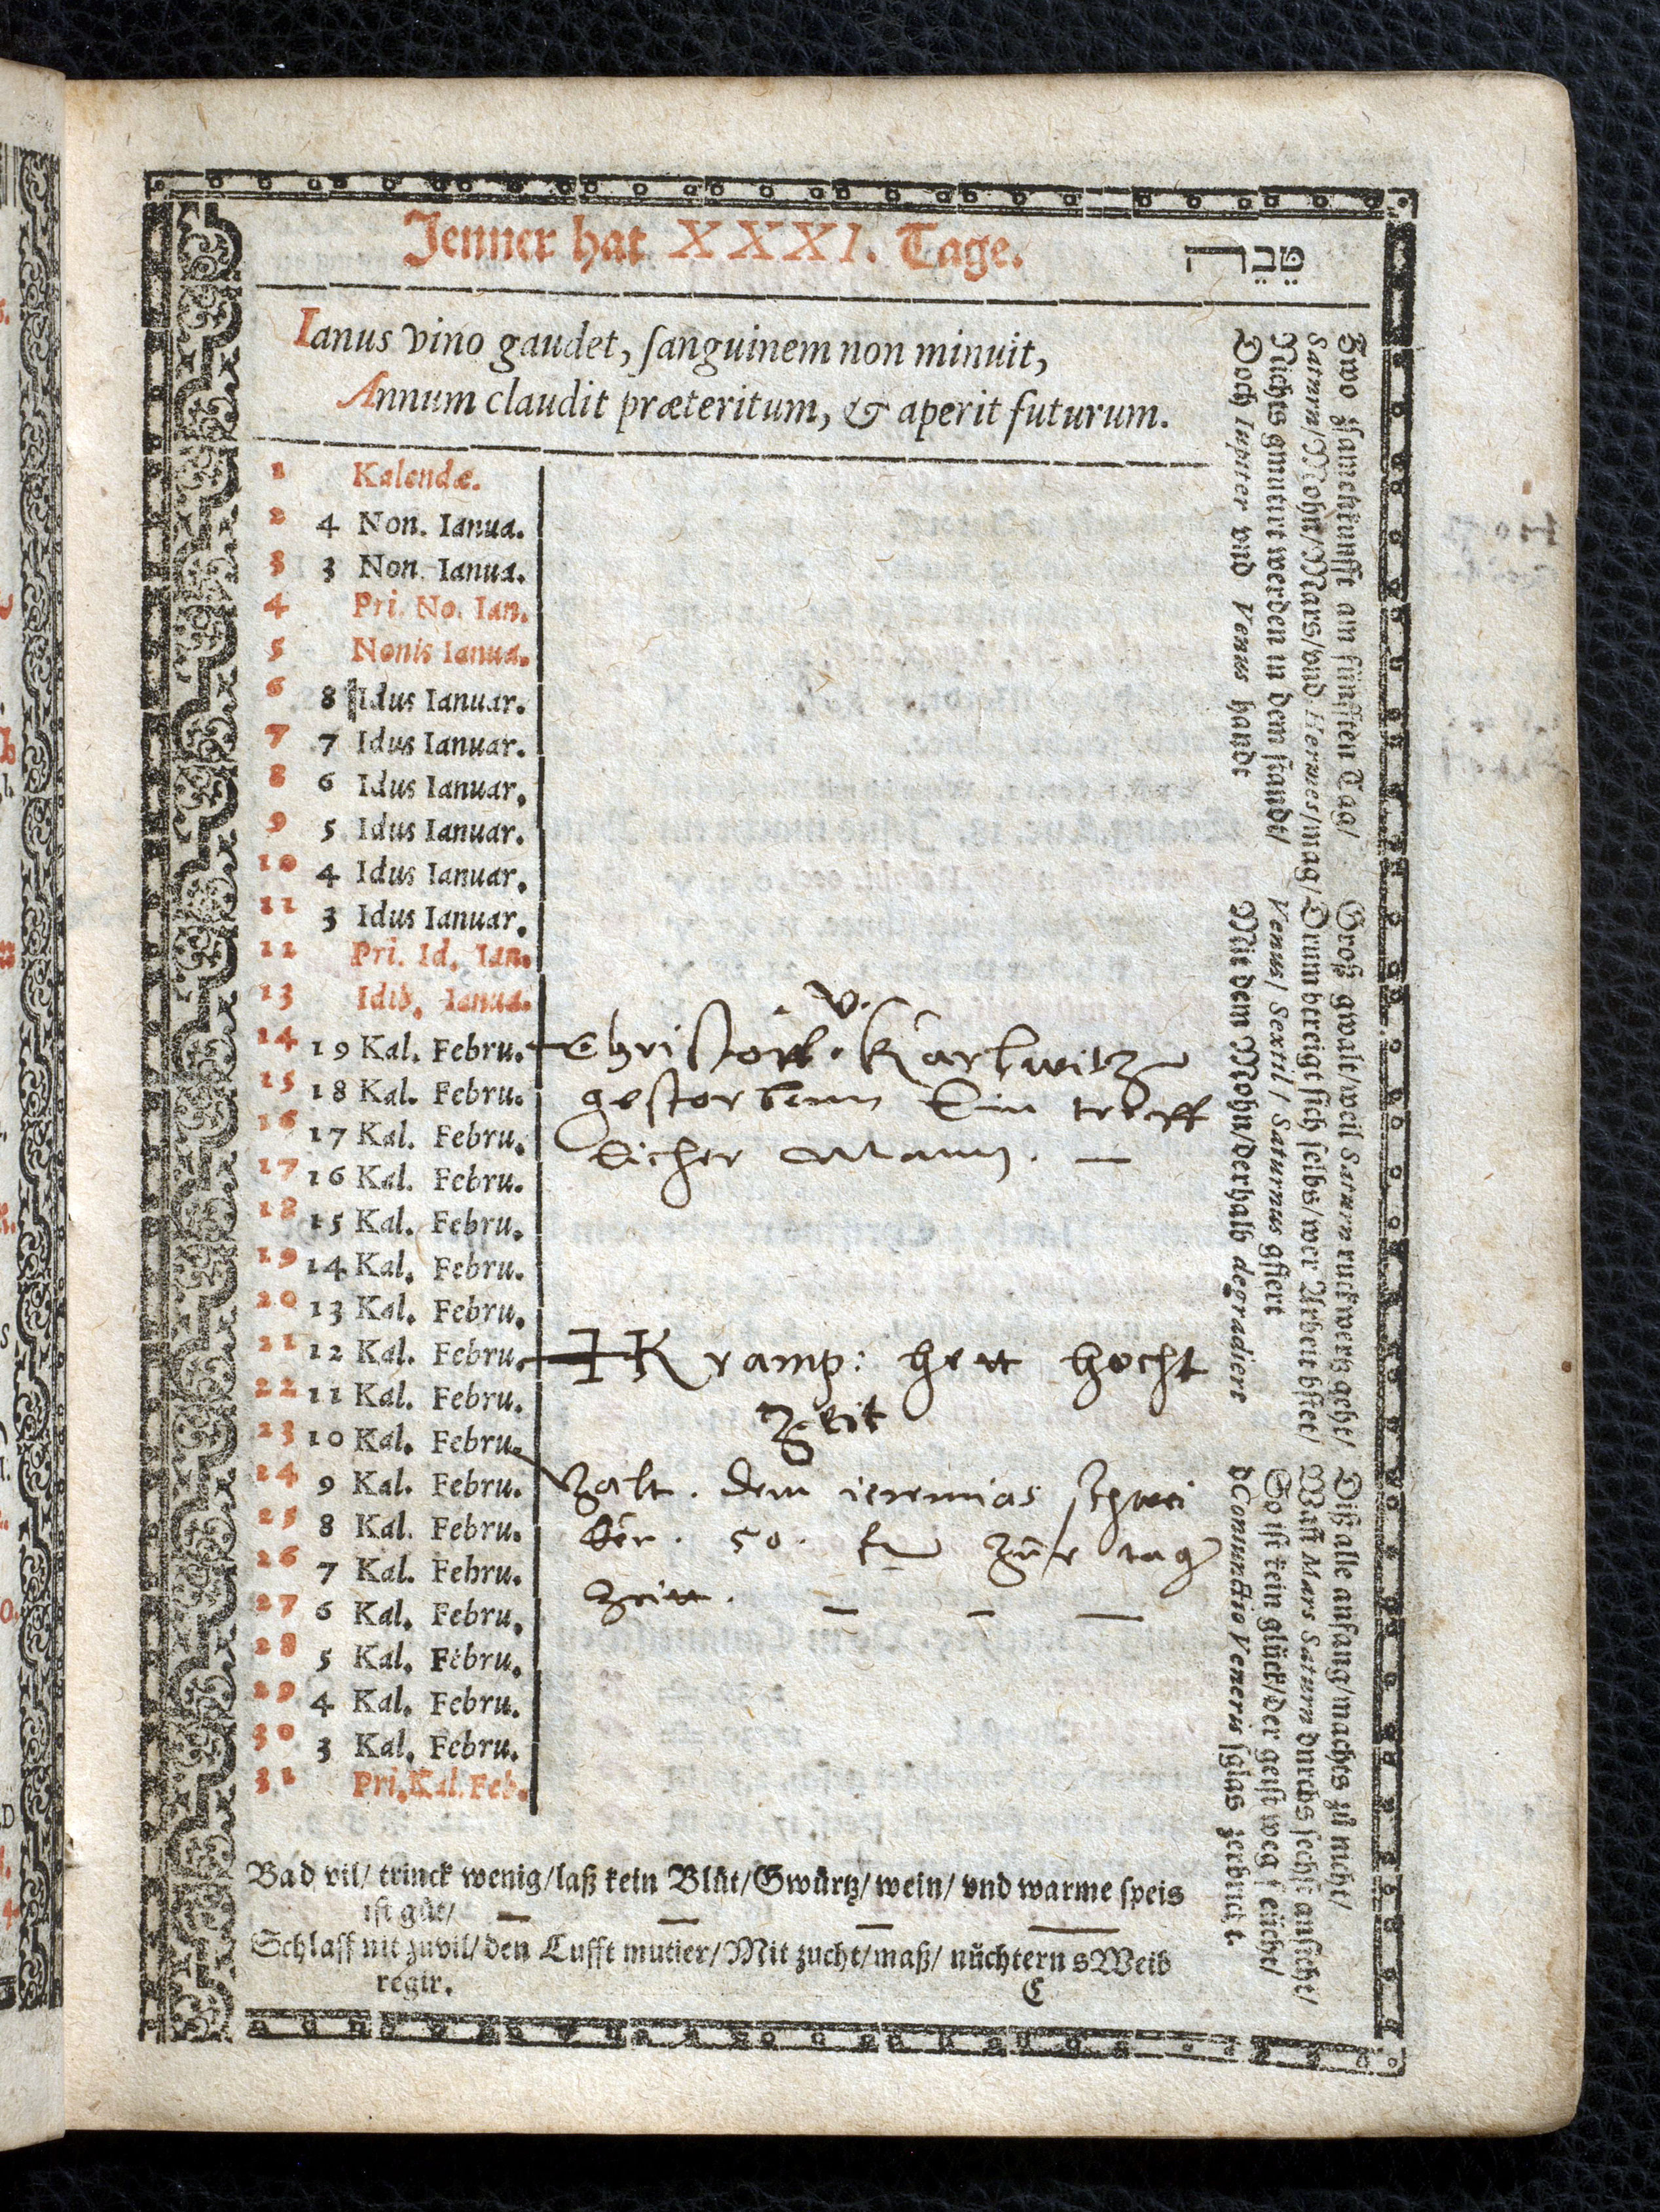 Jenner hat XXXI. Tage.
טֵבֵה
Ianus vino gaudet, ſanguinem non minuit,
Annum claudit præteritum, & aperit futurum.
1 Kalendæ.
2 4 Non. Ianua.
3 3 Non. Ianua.
4 Pri. No. Ian.
5 Nonis Ianua.
6 8 Idus Ianuar.
7 7 Idus Ianuar.
8 6 Idus Ianuar.
9 5 Idus Ianuar.
10 4 Idus Ianuar.
11 3 Idus Ianuar.
12 Pri. Id. Ian.
13 Idib. Ianua.
14 19 Kal. Febru.
15 18 Kal. Febru.
16 17 Kal. Febru.
17 16 Kal. Febru.
18 15 Kal. Febru.
19 14 Kal. Febru.
20 13 Kal. Febru.
21 12 Kal. Febru.
22 11 Kal. Febru.
23 10 Kal. Febru.
24 9 Kal. Febru.
25 8 Kal. Febru.
26 7 Kal. Febru.
27 6 Kal. Febru.
28 5 Kal. Febru.
29 4 Kal. Febru.
30 3 Kal. Febru.
31 Pri. Kal. Feb.
v.
Christoff. Karlwitz
gestorbenn Ein treff
licher Mann.
Kramp: hett hocht
Zeit
Zalt. dem ieremias schwei
ker. 50.
Zeitt.
Zwo zſamenkunfft am fünfften Tag/
Saturn/Mohn/Mars/vnd Hermes/mag/
Nichts gmutirt werden in dem ſtandt/
Doch Iupiter vnd Venus handt
Groß gwalt/weil Saturn ruckwertz geht/
Drumb ereigt ſich ſelbs/wer Arbeit bſtet/
Venus/ Sextil/ Saturnus gſtert
Mit dem Mohn/derhalb degradiert
Diß alle anfang/machts zů nicht/
Waſſ Mars Saturn durchs ſechſt anſicht/
So iſt kein glück/der geiſt weg ſeücht/
dConiunctio Veneris ſglas zerbrickt.
Bad vil/ trinck wenig/laß kein Blůt/Gwürtz/wein/ vnd warme ſpeis
iſt gůt/
Schlaff nit zuvil/den Lufft mutier/Mit zucht/maß/ nüchtern sWeib
regir.
C